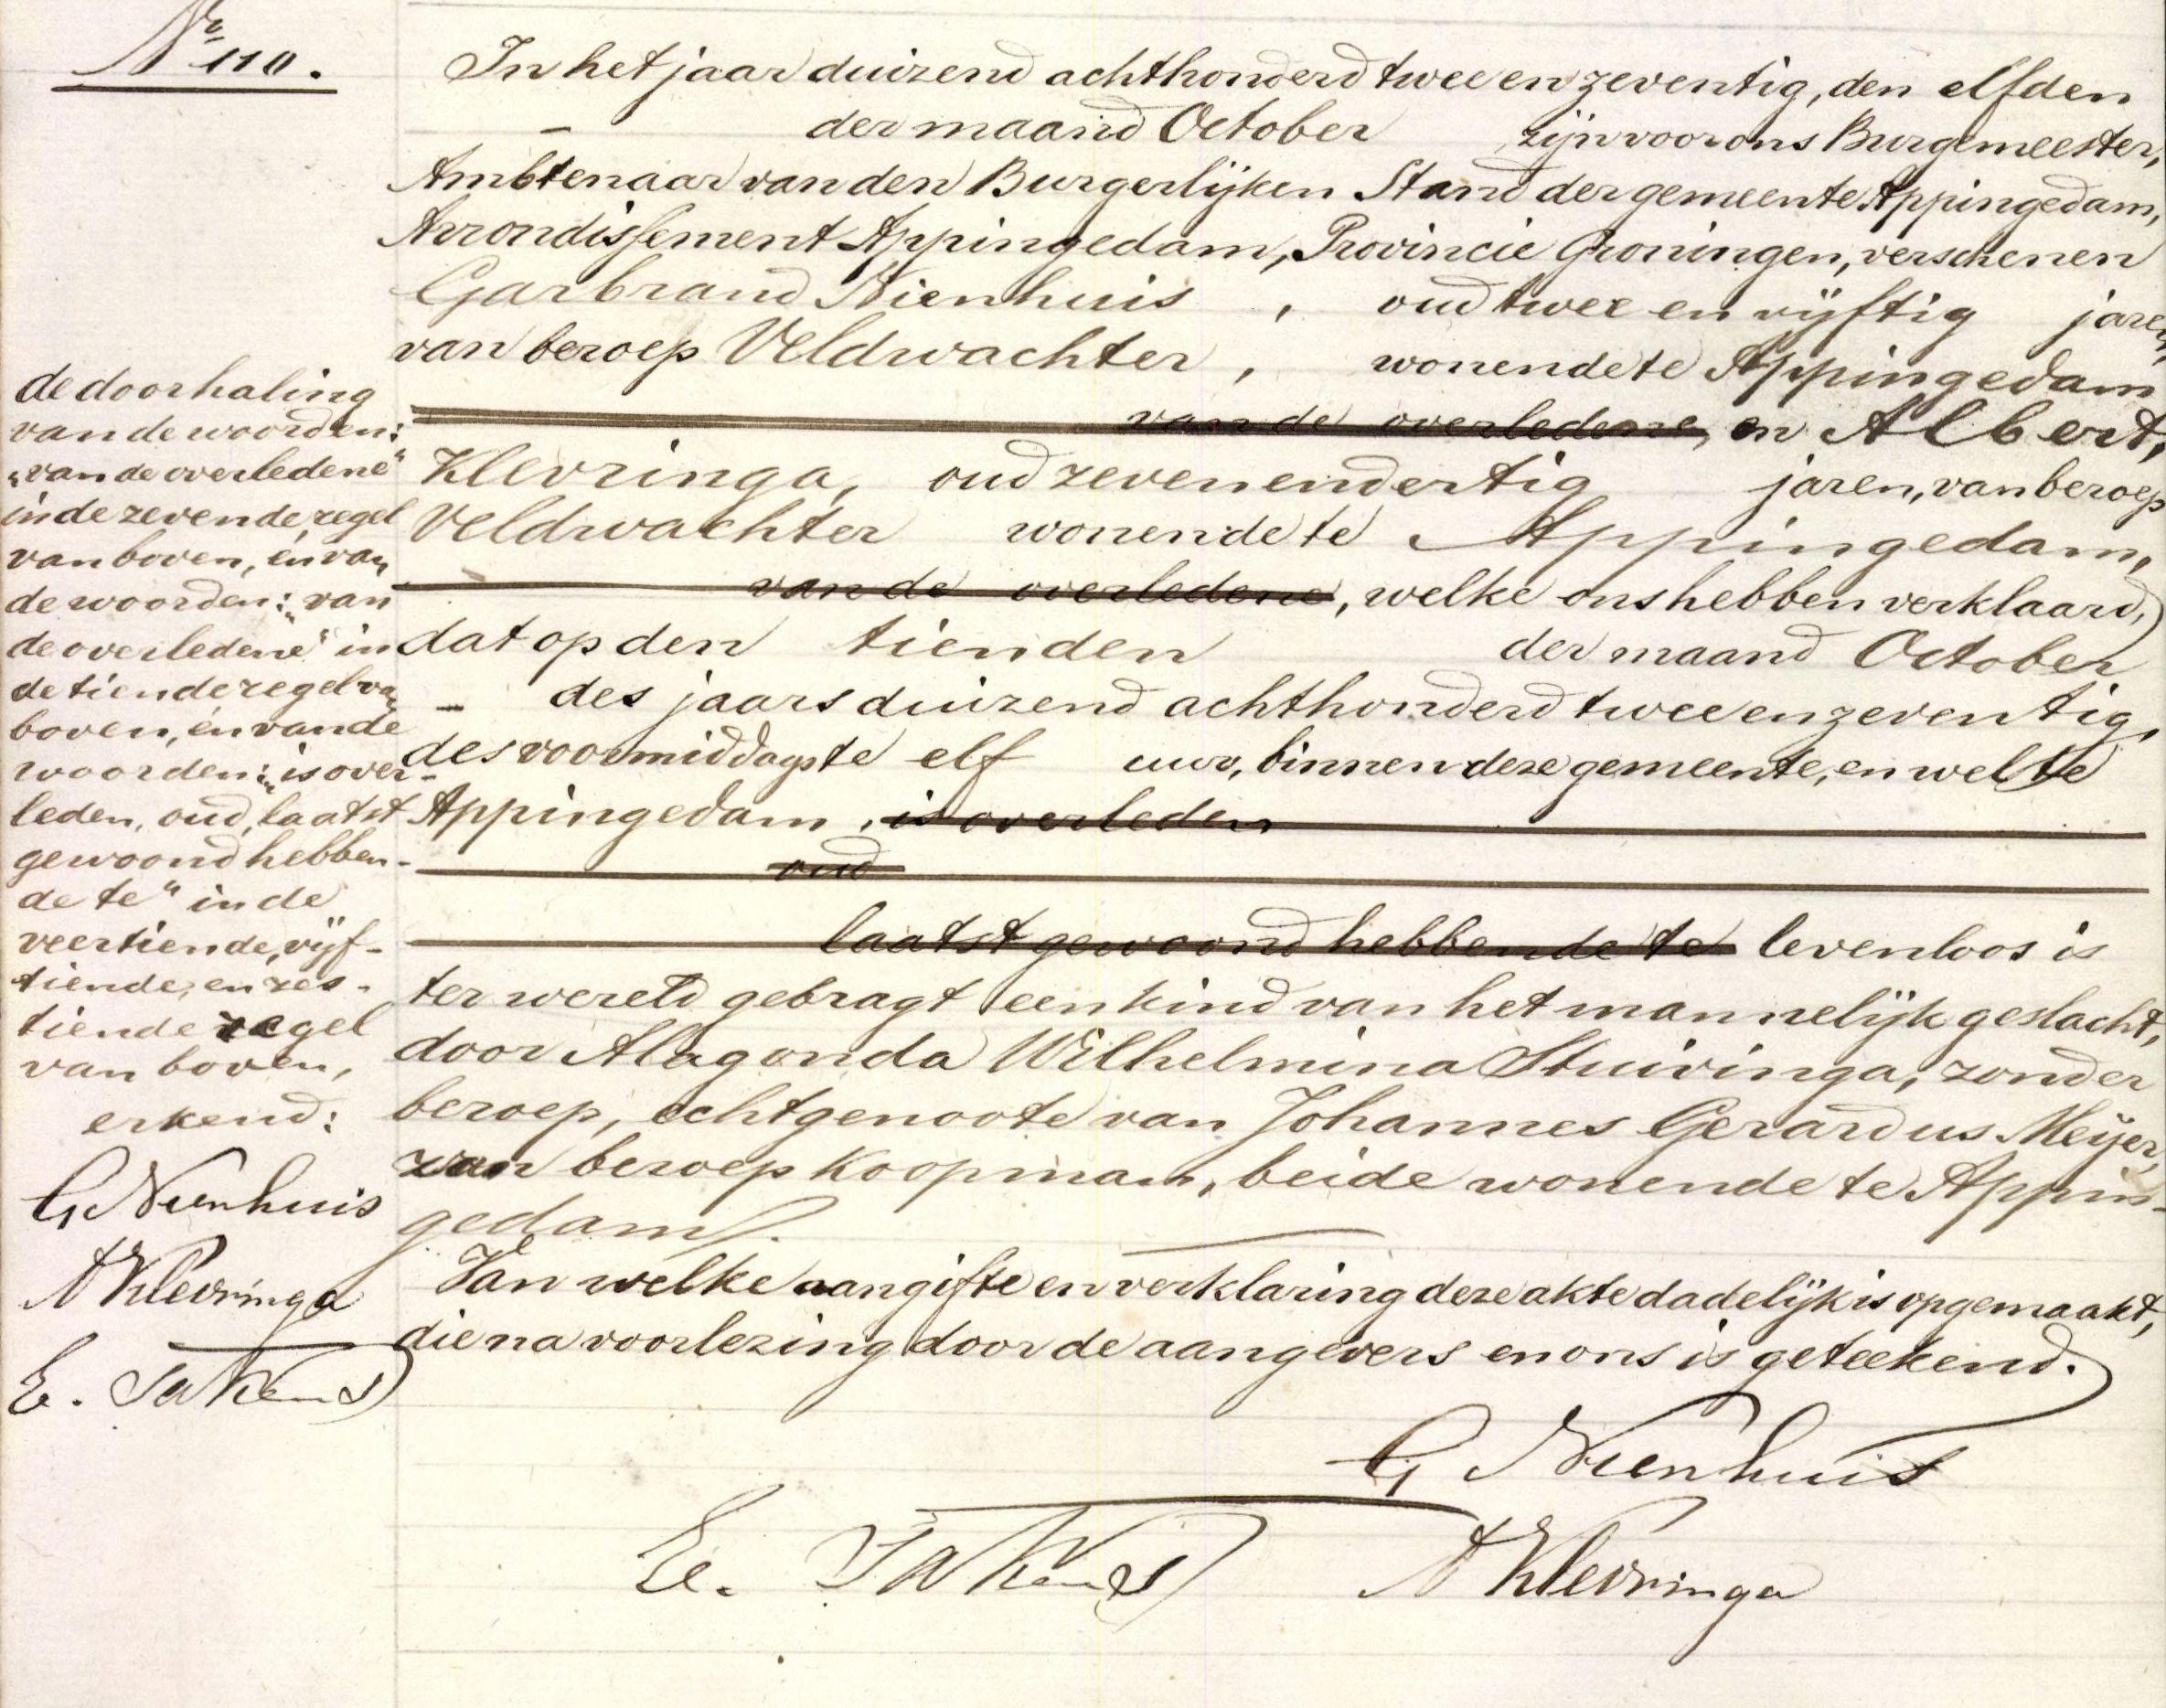 No 110.
In het jaar duizend achthonderd twee en zeventig, den elfden
der maand October zijn voor ons Burgemeester,
Ambtenaar van den Burgerlijken Stand der gemeente Appingedam,
Arrondissement Appingedam, Provincie Groningen, verschenen
Garbrand Nienhuis, oud twee en vijftig jaren,
van beroep Veldwachter, wonende te Appingedam
van de overledene, en Albert,
Klevringa, oud zeven en dertig jaren, van beroep
Veldwachter wonende te Appingedam,
van de overledene, welke ons hebben verklaard,
dat op den tienden der maand October
- des jaars duizend achthonderd twee en zeventig,
des voormiddags te elf uur, binnen deze gemeente, en wel te
Appingedam, is overleden
oud
laatst gewoond hebbende te levenloos is
ter wereld gebragt een kind van het mannelijk geslacht,
door Alagonda Wilhelmina Stuivinga, zonder
beroep, echtgenoote van Johannes Gerardus Meijer,
van beroep Koopman, beide wonende te Appin-
gedam.
Van welke aangifte en verklaring deze akte dadelijk is opgemaakt,
die na voorlezing door de aangevers en ons is geteekend.
G Nienhuis
E. Takens A Klevringa
de doorhaling
van de woorden:
"van de overledene"
in de zevende regel
van boven, en van
de woorden: "van
de overledene" in
de tiende regel van
boven, en van de
woorden: "is over-
leden, oud, laatst
gewoond hebben-
de te" in de
veertiende, vijf-
tiende, en zes-
tiende regel
van boven,
erkend:
G Nienhuis
A Klevringa
E. Takens